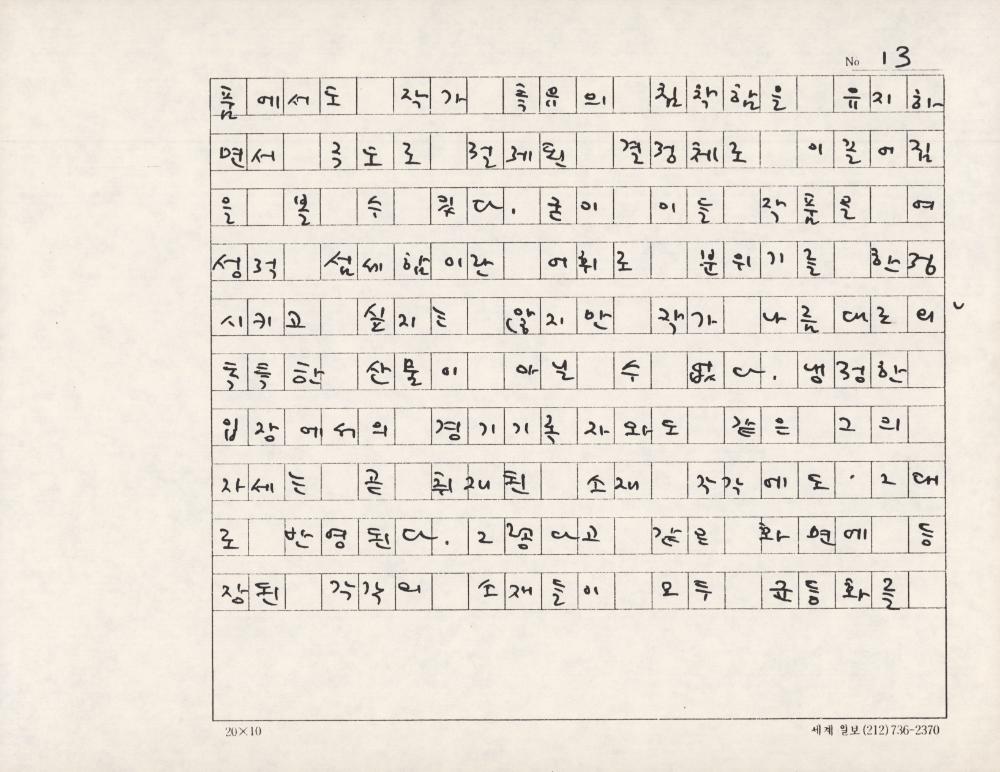 No 13
품에서도 작가 특유의 침착함을 유지하
면서 극도로 절제된 결정체로 이끌어짐
을 볼 수 있다. 굳이 이들 작품을 여
성적 섬세함이란 어휘로 분위기를 한정
시키고 싶지는 않지만 작가 나름대로의
독특한 산물이 아닐 수 없다. 냉정한
입장에서의 경기기록자와도 같은 그의
자세는 곧 취재된 소재 각각에도 그대
로 반영된다. 그렇다고 같은 화면에 등
장된 각각의 소재들이 모두 균등화를
20×10
세계 일보 (212) 736-2370